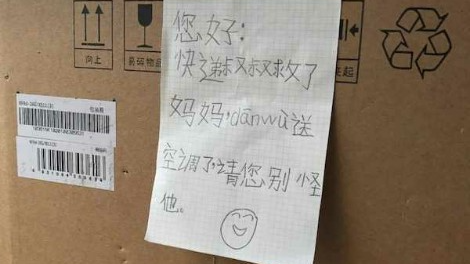 您好:
快递叔叔救了
妈妈,dānwù送
空调了,请您别怪
他。
向上
易碎物品